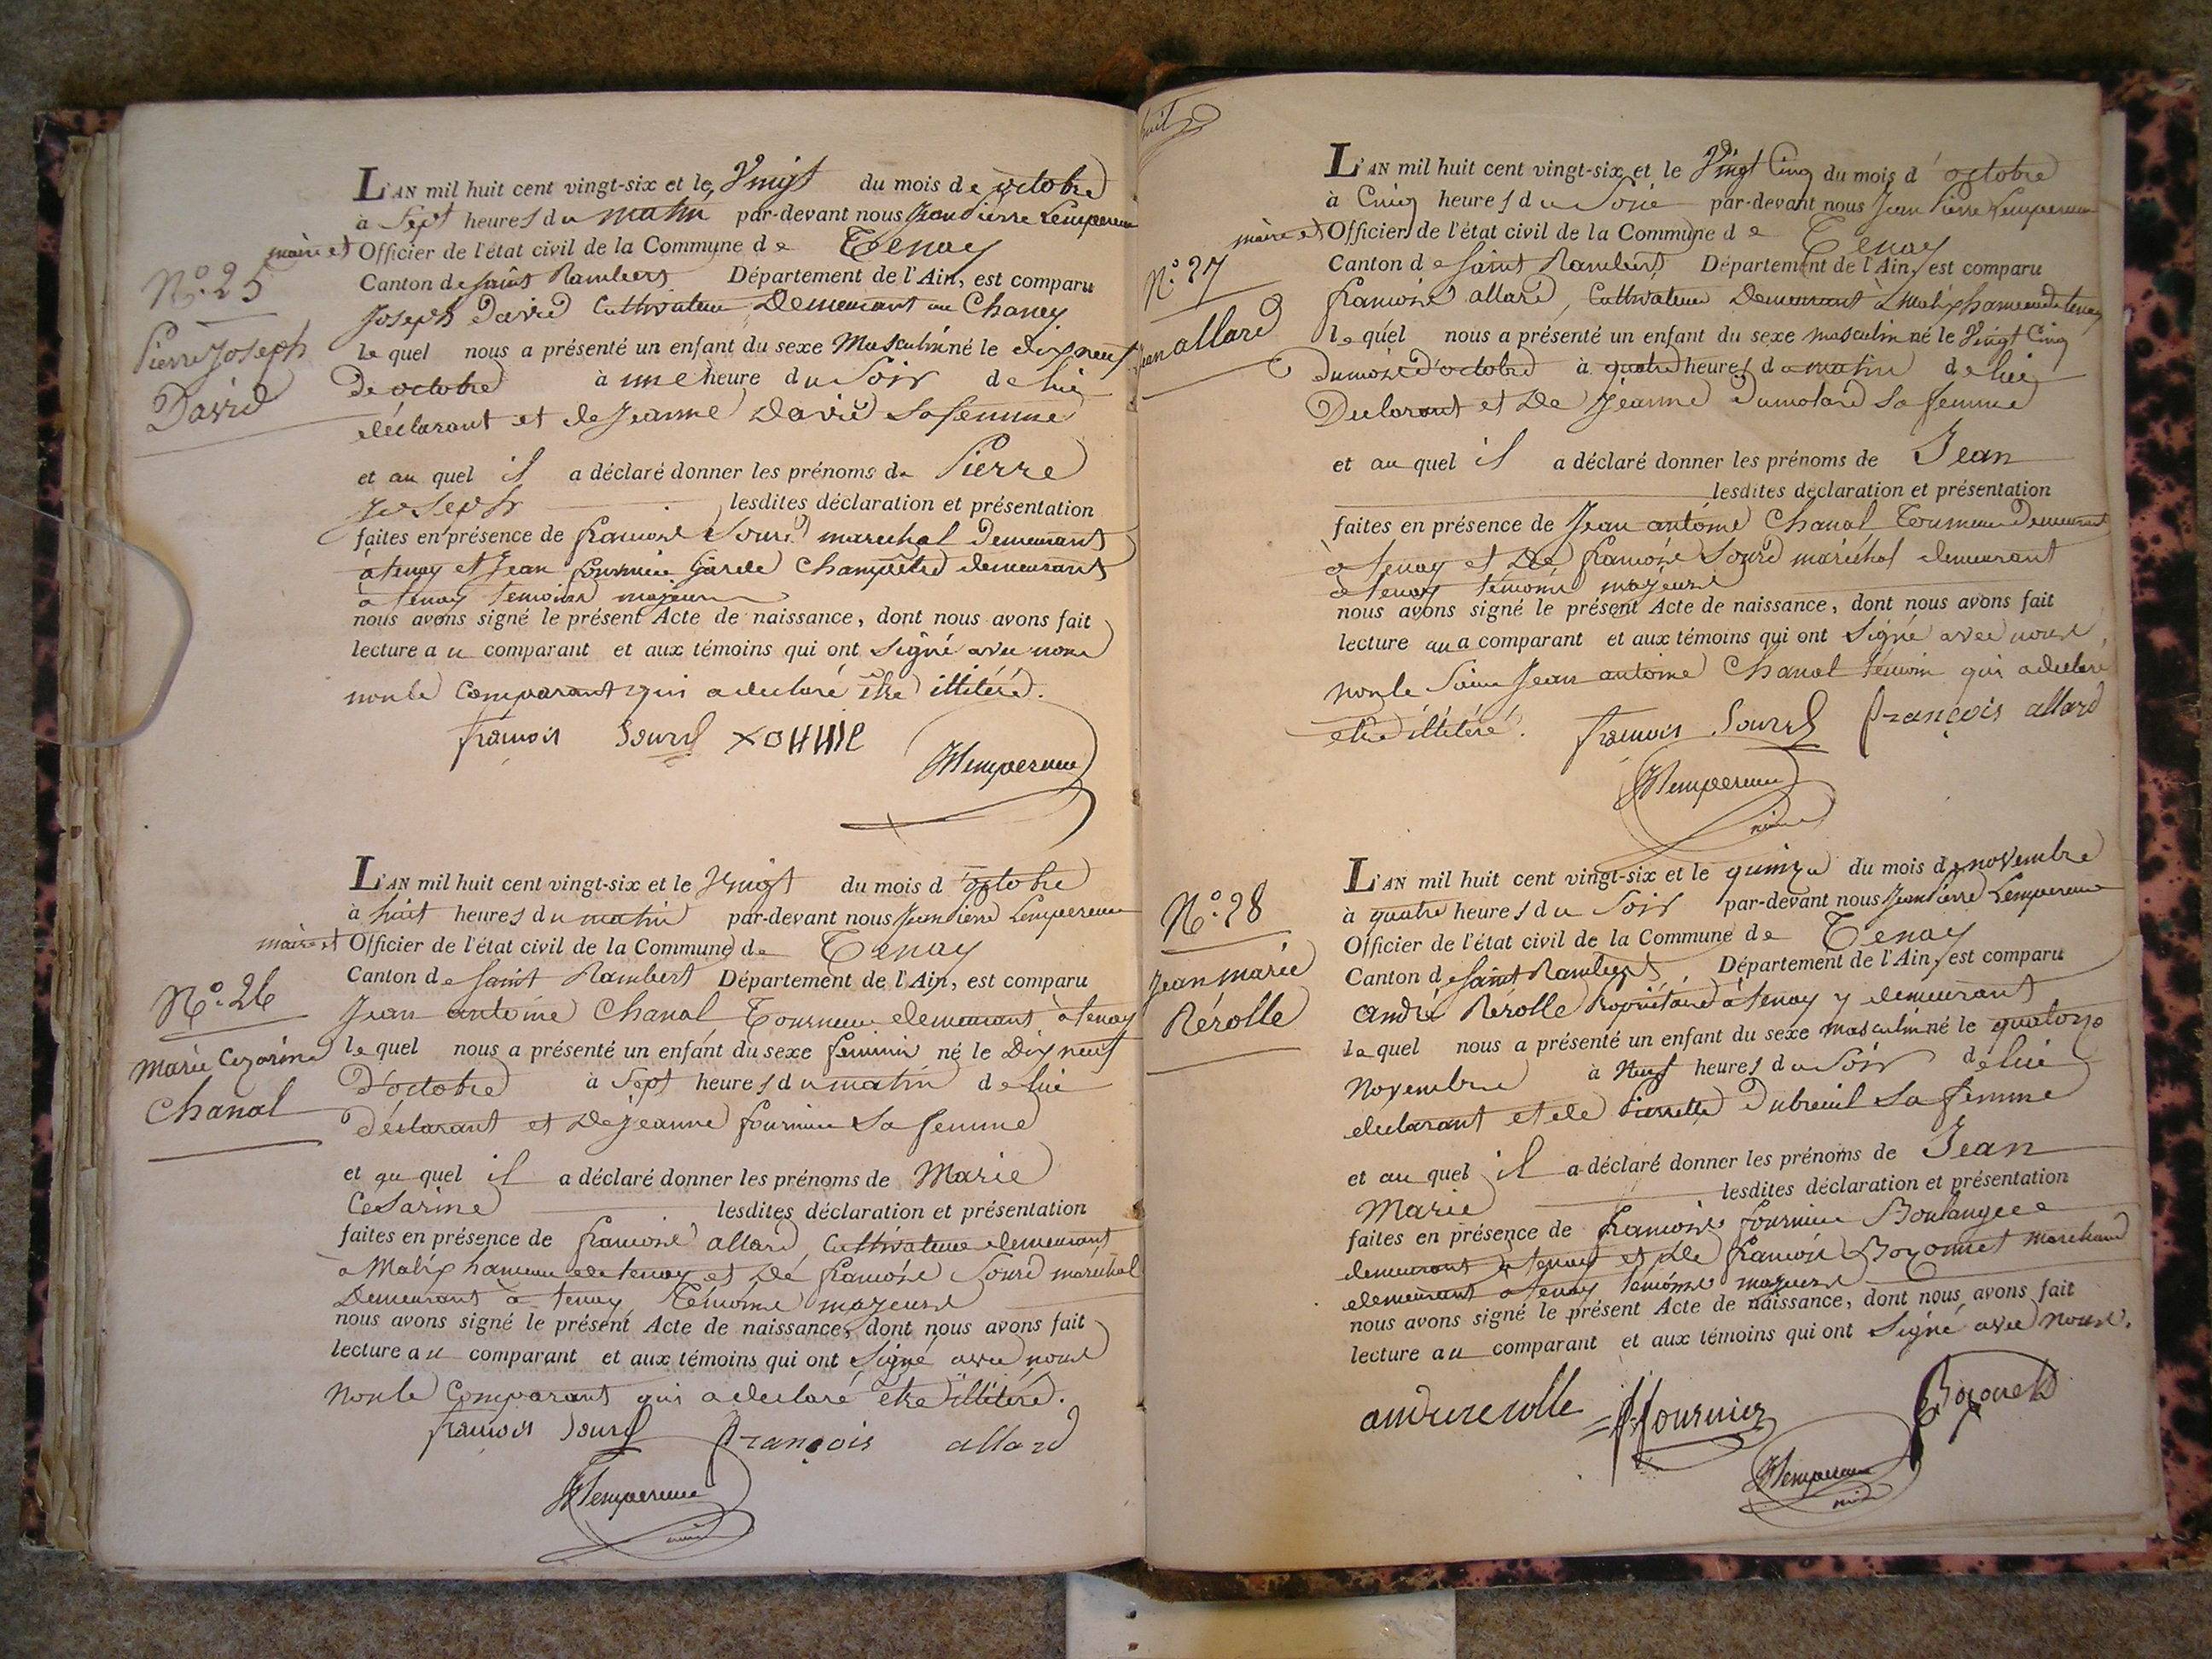 L'AN mil huit cent vingt-six et le Vingt du mois de octobre
à Sept heures du matin par-devant nous Jean Pierre Lempereur
maire et Officier de l'état civil de la Commune de Tenay
Canton de saint Rambert Département de l'Ain, est comparu
N.º 25
Joseph David Cultivateur Demeurant au Chaney
Pierre Joseph
David
lequel nous a présenté un enfant du sexe Masculin né le dix neuf
De octobre à une heure du Soir de lui
déclarant et de Jeanne David Sa femme
et au quel il a déclaré donner les prénoms de Pierre
Joseph lesdites déclaration et présentation
faites en présence de francois Sourd marechal Demeurant
à tenay et Jean fournier Garde Champêtre demeurant
à tenay temoins majeurs
nous avons signé le présent Acte de naissance, dont nous avons fait
lecture au comparant et aux témoins qui ont Signé avec nous
non le Comparant qui a declaré être illitéré.
francois Sourd
JPLempereur
L'AN mil huit cent vingt-six et le Vingt du mois d'octobre
à huit heures du matin par-devant nous Jean Pierre Lempereur
maire et Officier de l'état civil de la Commune de Tenay
Canton de saint Rambert Département de l'Ain, est comparu
N.º 26
Jean antoine Chanal Tourneur demeurant à tenay
Marie Cezarine
Chanal
lequel nous a présenté un enfant du sexe feminin né le Dix neuf
D'octobre à Sept heures du matin de lui
Déclarant et De Jeanne fournier Sa femme
et au quel il a déclaré donner les prénoms de Marie
Cesarine lesdites déclaration et présentation
faites en présence de francois allard Cultivateur demeurant
à Malix hameau de tenay et De francois Sourd marechal
Demeurant à tenay Témoins majeurs
nous avons signé le présent Acte de naissance, dont nous avons fait
lecture au comparant et aux témoins qui ont Signé avec nous
Non le Comparant qui a declaré être illitéré.
francois Sourd françois allard
JPLempereur
maire
huit
L'AN mil huit cent vingt-six et le Vingt Cinq du mois d'octobre
à Cinq heures du Soir par-devant nous Jean Pierre Lempereur
maire et Officier de l'état civil de la Commune de Tenay
Canton de Saint Rambert Département de l'Ain, est comparu
N.º 27
Jean allard
francois allard, Cultivateur Demeurant à Malix hameau de tenay
lequel nous a présenté un enfant du sexe masculin né le Vingt Cinq
Du mois d'octobre à quatre heures du matin de lui
Declarant et De Jeanne Dumolard Sa femme
et au quel il a déclaré donner les prénoms de Jean
lesdites déclaration et présentation
faites en présence de Jean antoine Chanal Tourneur Demeurant
à tenay et De francois Sourd maréchal demeurant
à tenay témoins majeurs
nous avons signé le présent Acte de naissance, dont nous avons fait
lecture au comparant et aux témoins qui ont Signé avec nous,
non le Sieur Jean antoine Chanal témoin qui a declaré
etre illitéré. francois Sourd françois allard
JPLempereur
maire
L'AN mil huit cent vingt-six et le quinze du mois de novembre
à quatre heures du Soir par-devant nous Jean Pierre Lempereur
Officier de l'état civil de la Commune de Tenay
Canton de Saint Rambert, Département de l'Ain, est comparu
N.º 28
Jean marie
Rérolle
André Rérolle Propriétaire à tenay y demeurant
lequel nous a présenté un enfant du sexe masculin né le quatorze
Novembre à Neuf heures du Soir de lui
declarant et de Pierrette Dubreuil Sa femme
et au quel il a déclaré donner les prénoms de Jean
Marie lesdites déclaration et présentation
faites en présence de francois fournier Boulanger
demeurant à tenay et De francois Bozonnet marchand
demeurant à tenay témoins majeurs
nous avons signé le présent Acte de naissance, dont nous avons fait
lecture au comparant et aux témoins qui ont Signé avec nous.
andre rerolle fournier
JPLempereur
maire